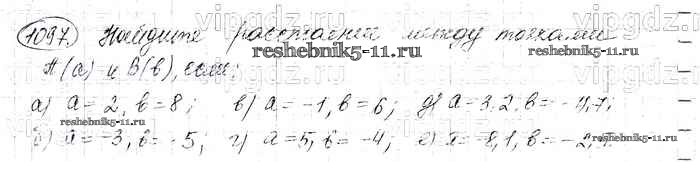 1097. Найдите расстояние между точками
А(а) и В(в), если:
а) а = 2, в = 8; в) а = -1, в = 6; д) а = 3,2, в = -4,7;
б) а = -3, в = -5; г) а = 5, в = -4; е) а = -8,1, в = -2,
reshebnik5-11.ru
reshebnik5-11.ru
reshebnik5-11.ru
reshebnik5-11.ru
vipgdz.ru